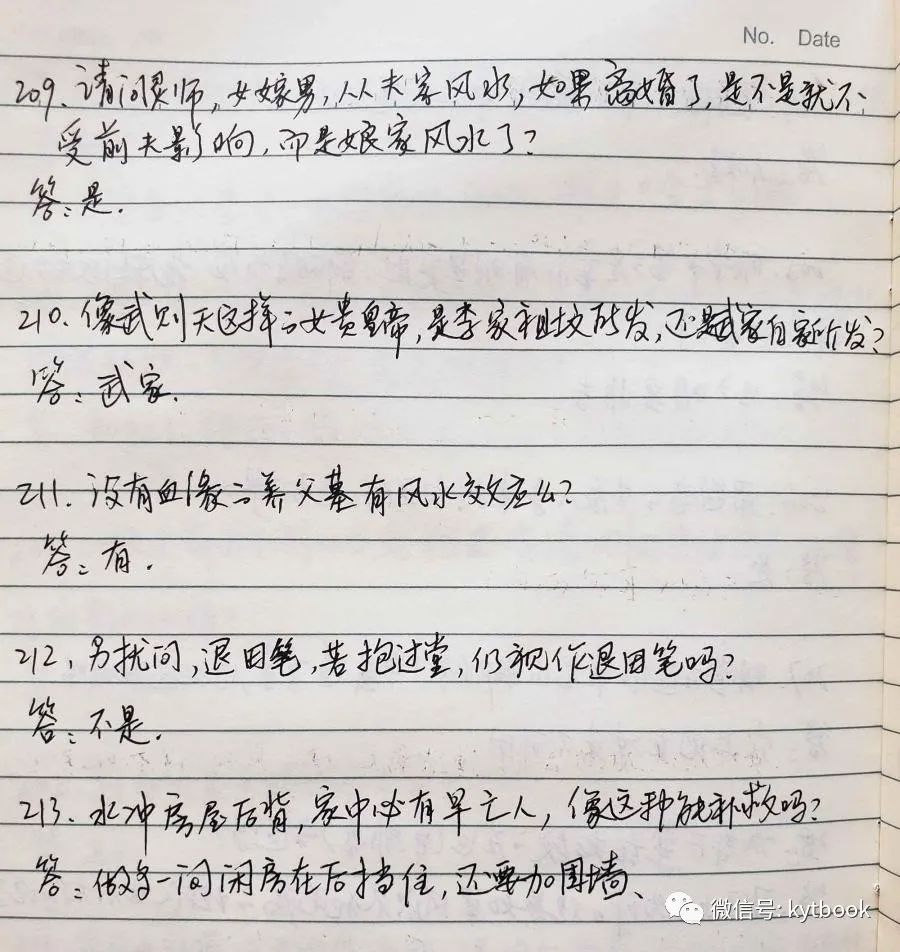 No. Date
209. 请问灵师，女嫁男，从夫家风水，如果离婚了，是不是就不
受前夫影响，而是娘家风水了？
答：是.
210. 像武则天这样的女贵皇帝，是李家祖坟所发，还是武家自家所发？
答：武家.
211. 没有血缘的养父墓有风水效应么？
答：有.
212. 另扰问，退田笔，若抱过堂，仍视作退田笔吗？
答：不是.
213. 水冲房屋后背，家中必有早亡人，像这种能补救吗？
答：做多一间闲房在后挡住，还要加围墙、
微信号: kytbook